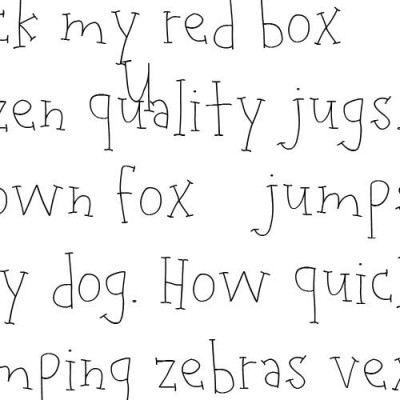 ck my red box
zen quality jugs.
own fox jumps
y dog. How quick
mping zebras vex